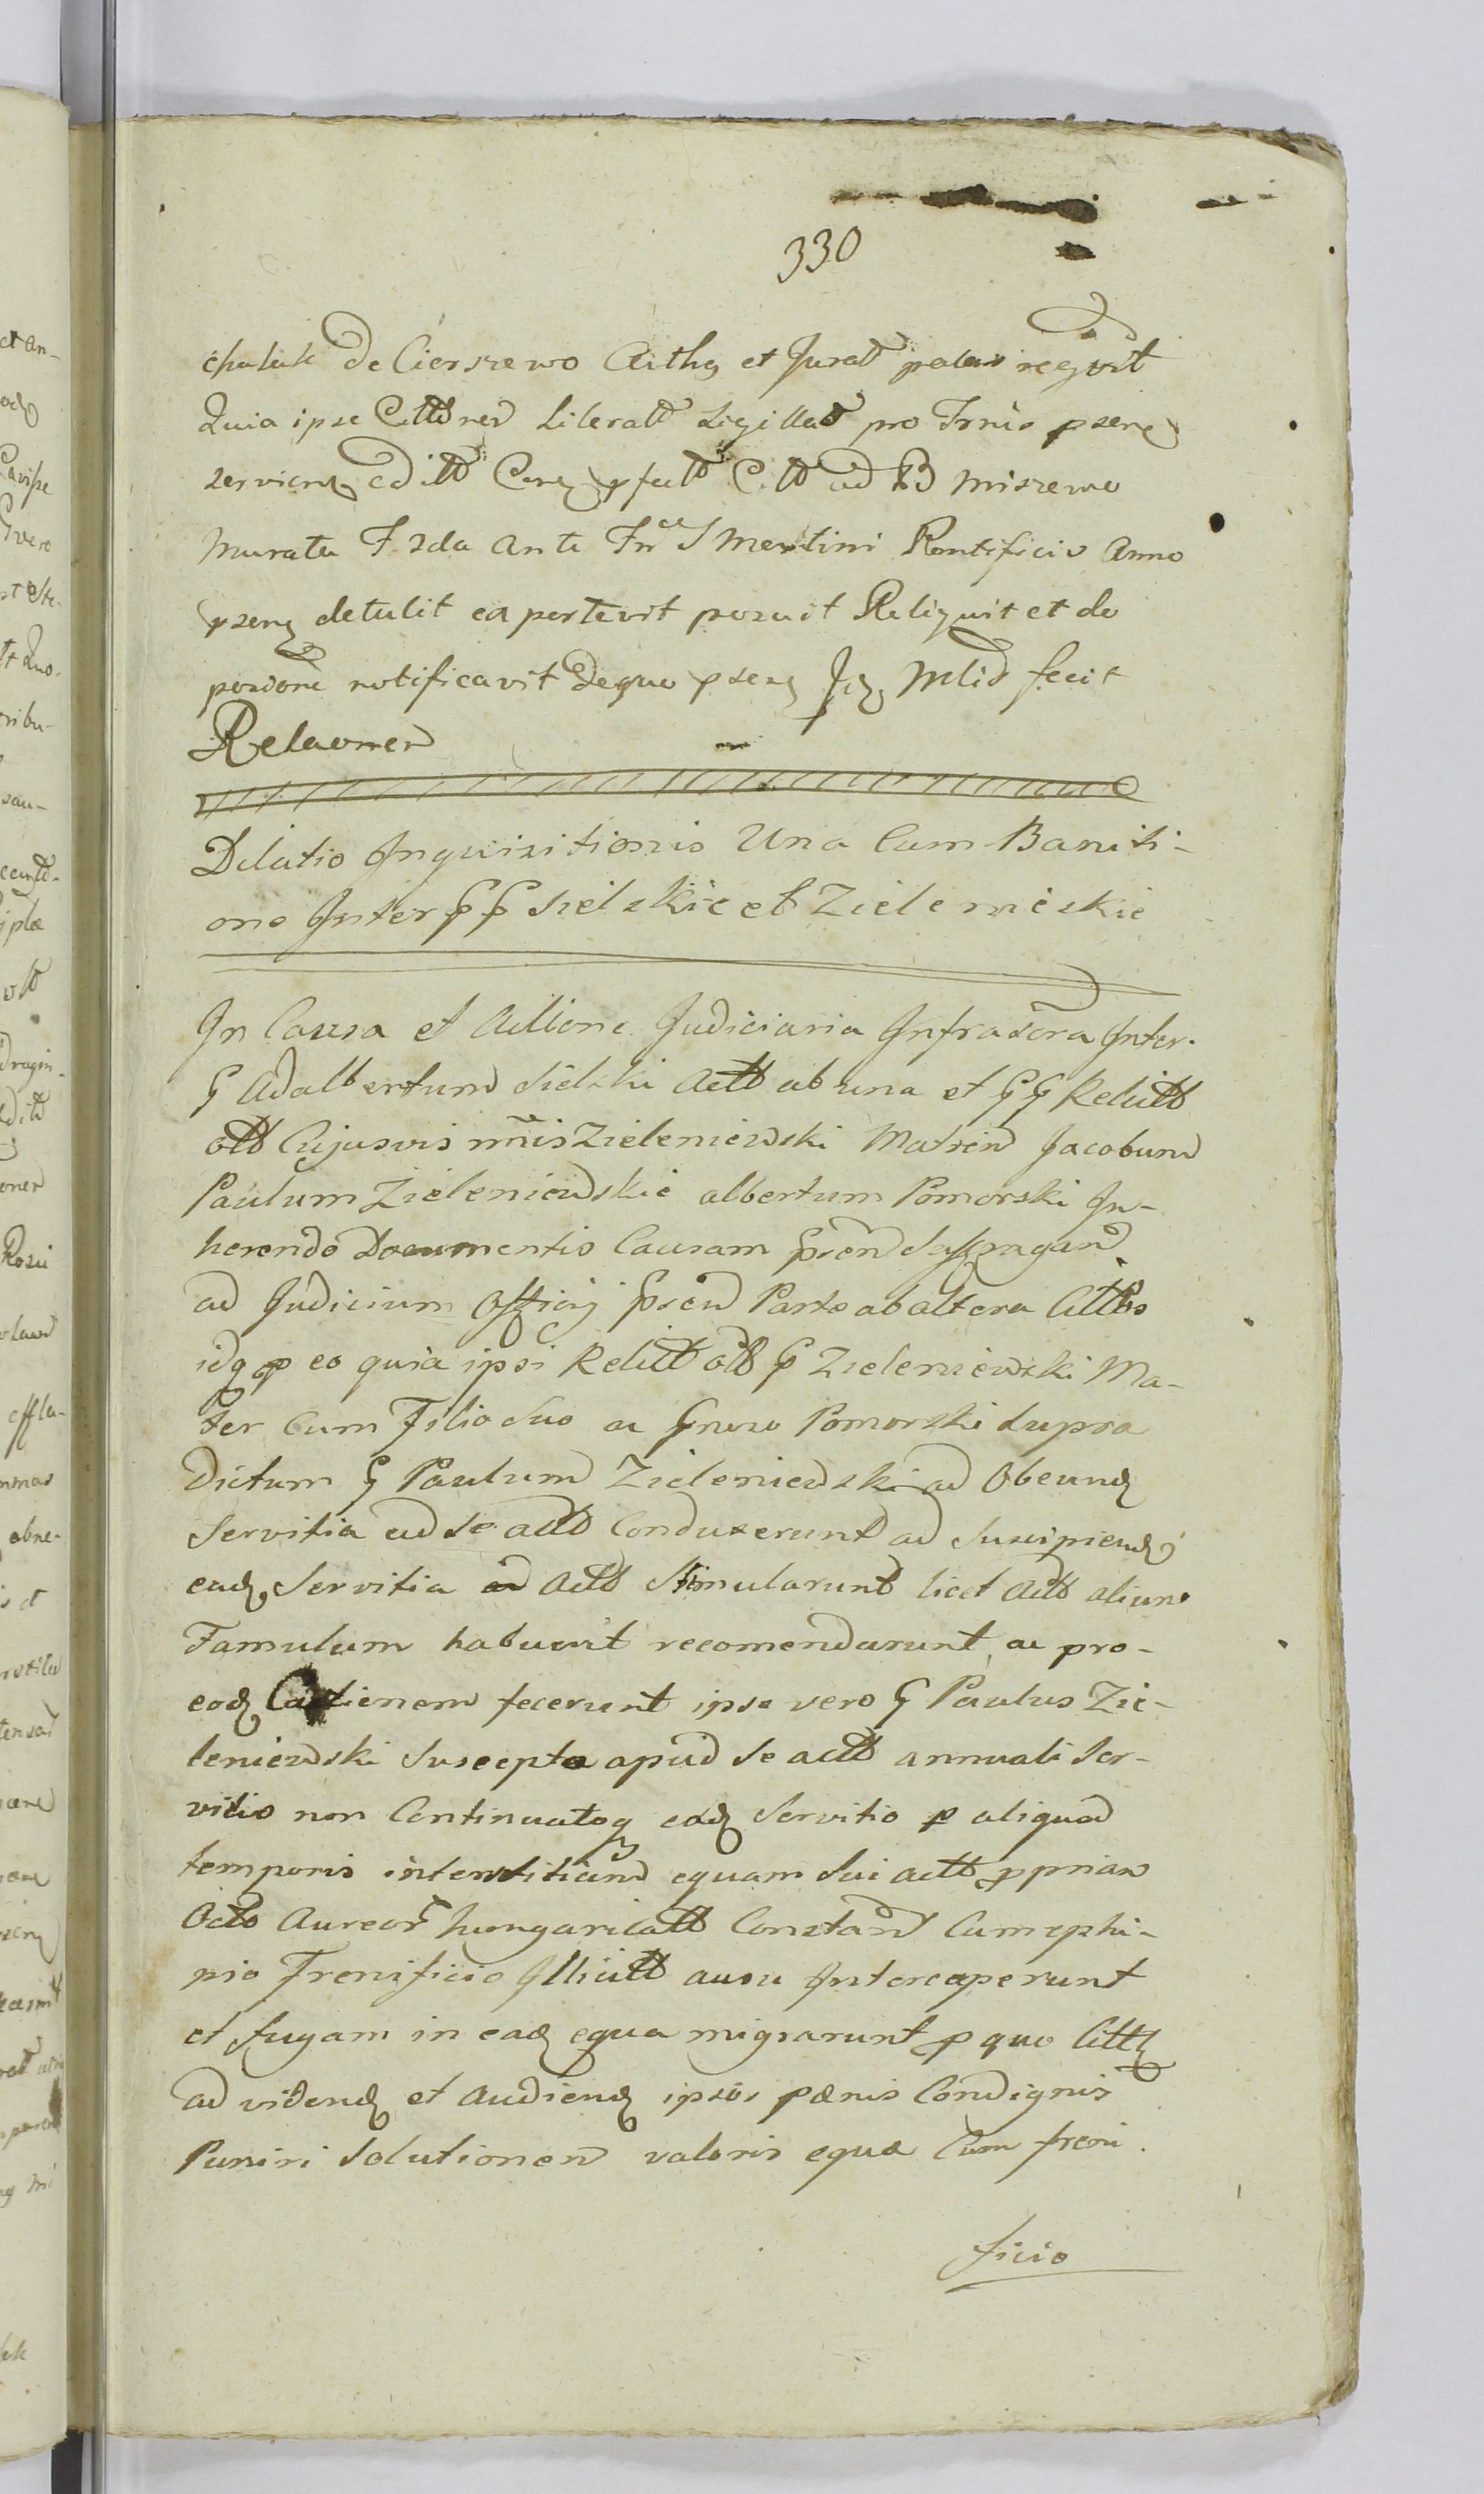 330
de Cierszewo Auth et Jurat palam regvit
Quia ipse Cittnem Literat Sigillat pro Trnis psen
servien editt Cittt ad B Miszewo
Murata F 2da ante Fn S Martini Pontificis Anno
psen detulit ea portavit posuit Reliquit et de
posione notificavit deque psens Mlis fecit
Relaonem
Dilatio Inquisitionis Una Cum Baniti-
one Inter GG Sielskie et Zieleniewskie
In Causa et Actione Judiciaria Infrascra Inter
G Adalbertum Sielski Actt ab una et GG Relictt
ott Cujusvis nnis Zieleniewski Matrem Jacobum
Paulum Zieleniewskie albertum Pomorski In-
herendo Documentis Causam psen Suffragan
ad Judicium Officij psens Parte ab altera Cittos
idq p eo quia ipsi Relitt ott G Zieleniewski Ma-
ter Cum Filio Suo a Gneroso Pomorski supra
Dictum G Paulum Zieleniewski ad Obeund
Servitia ad se actt Conduxerunt ad Suscipiend
ead Servitia ad Actt Stimularunt licet Actt alium
Famulum habuerit recomendarunt ac pro
eod Cautionem fecerunt ipse vero G Paulus Zie-
leniewski Suscepto apud Se actt annuali Ser-
vitio non Continuatoq eod Servitio p aliquod
temporis interstitium equam Sui actt ppriam
Octo Aureor hungaricatt Constan Cum ephi-
pio Frenificio Illicitt ausu Intercaperunt
et fugam in ead equa migrarunt p quo Citt
ad videnq et Audienq ipsos pænis Condignis
Puniri Solutionem valoris equæ Cum freni
ficio